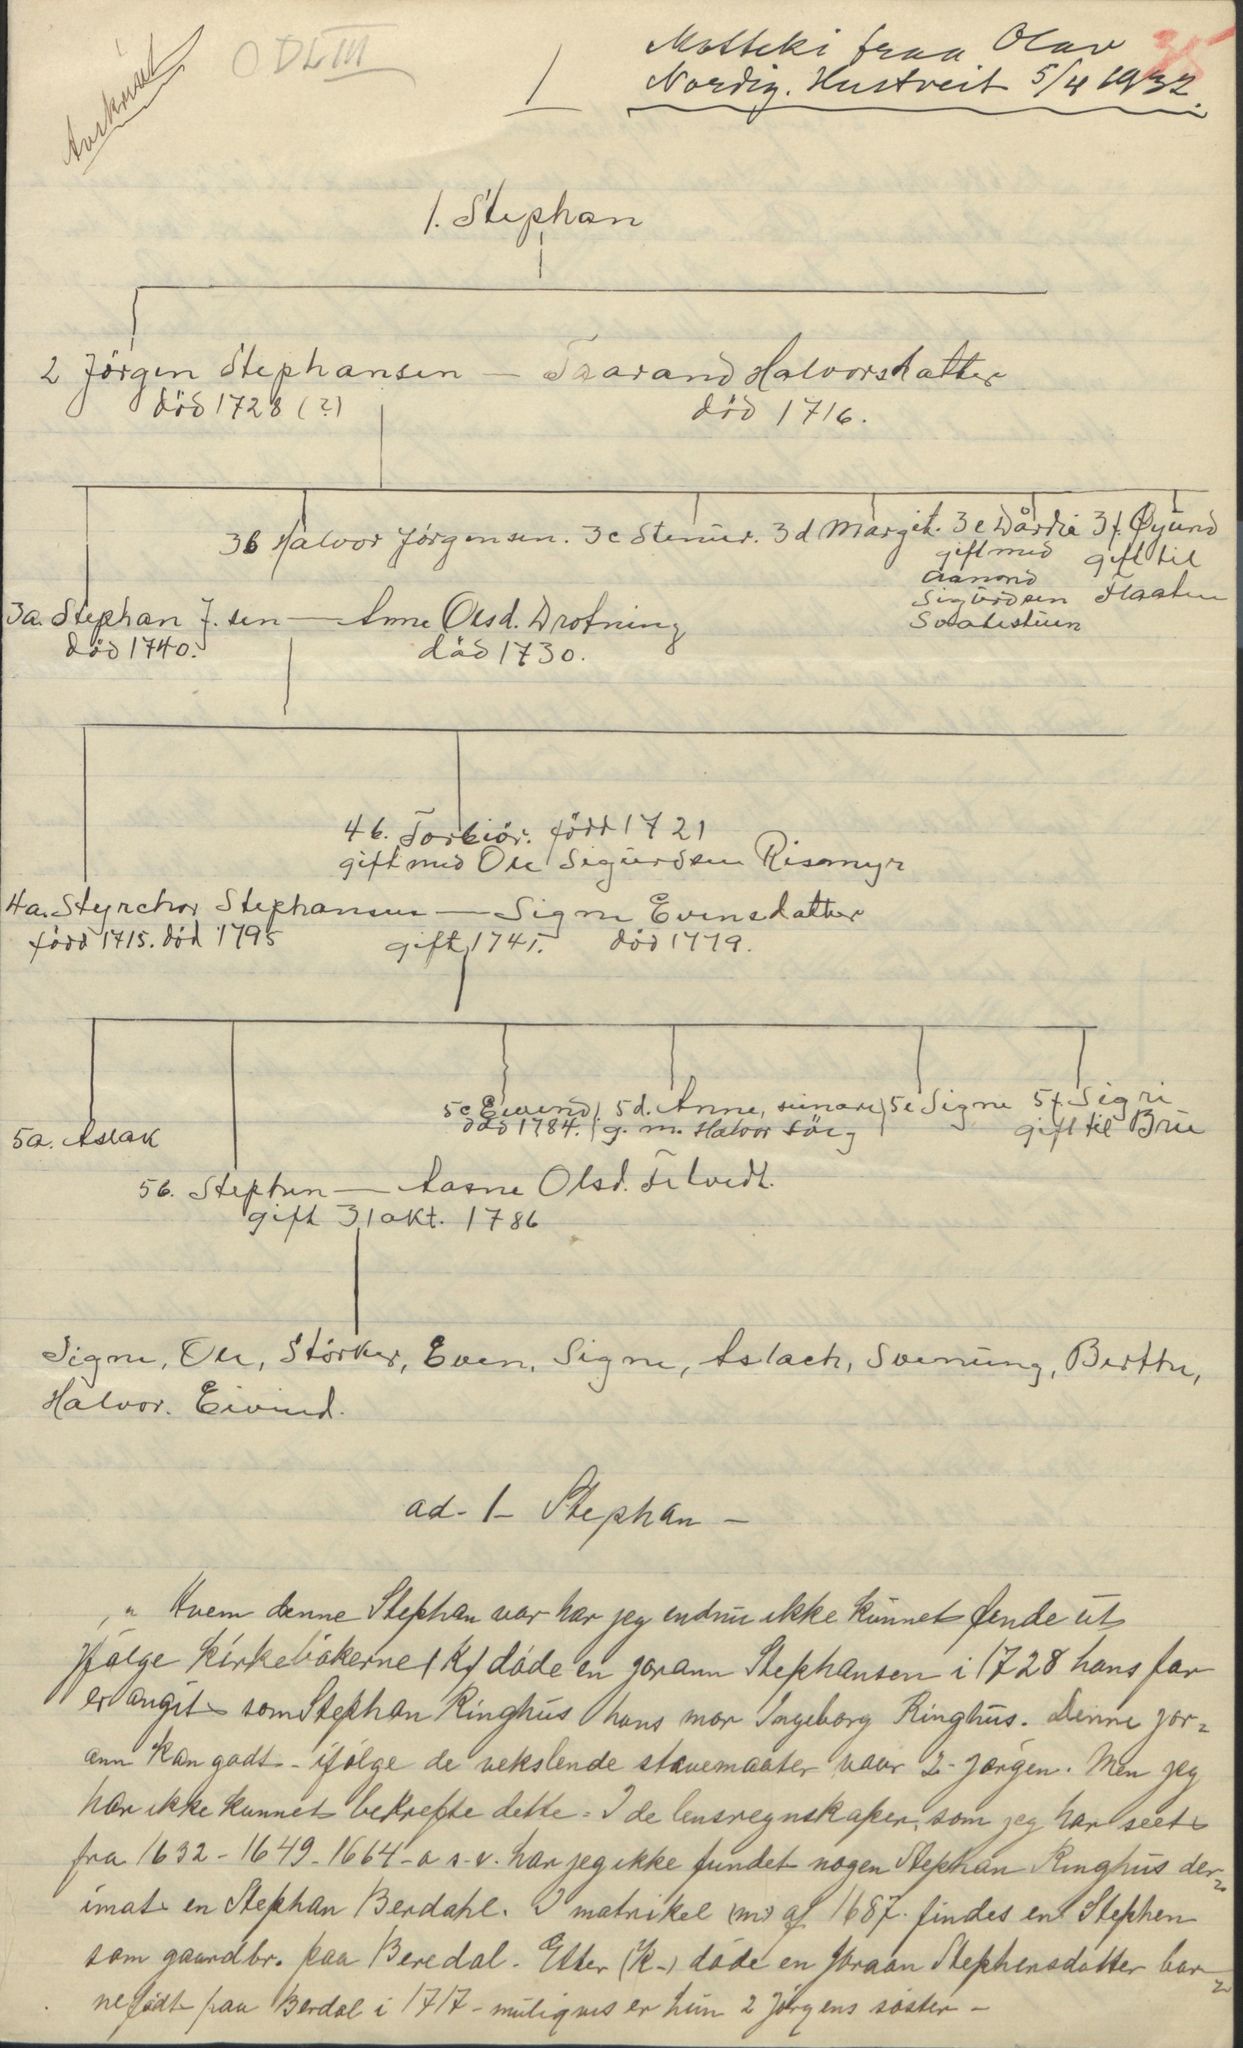 Avskrivet
ODLIII
1
Motteke fraa Olav
Nordig. Hustveit 5/4 1932.
1. Stephan
2 Jörgen Stephansen — Taarand Halvorsdatter
död 1728 (?)
död 1716.
3b Halvor Jørgensen. 3c Stenür. 3d Margit. 3e Dårdie 3f. Øyünd
gift med
gift til
Aanond
Sigürdsen
Flaaten
3a. Stephan J.sen — Anne Olsd. Drotning
död 1740.
död 1730.
4b. Torbiör. född 1721
gift med Ole Sigürdsen Risamyr
4a. Styrchor Stephansen — Signe Evensdatter
född 1715. död 1795
gift 1745.
död 1779.
5c Eivind 5d. Anne, 5e Signe 5f. Sigri
död 1784. g. m. Halvor
gift til Brü
5a. Aslak
5b. Stephen — Aasne Olsd. Fetvedt.
gift 31 okt. 1786
Signe, Ole, Störker, Even, Signe, Aslach, Svenüng, Birthe,
Halvor. Eivind.
ad- 1- Stephan —
" Hvem denne Stephan var har jeg endnu ikke kunnet finde ut
Ifölge Kirkebökerne (K) döde en Jorann Stephansen i 1728 hans far
er angit som Stephan Ringhüs hans mor Ingeborg Ringhüs. Denne Jor=
ann kan godt - ifölge de vekslende stavemaater være 2- Jørgen. Men jeg
har ikke kunnet bekrefte dette - I de lensregnskaper, som jeg har seet
fra 1632 - 1649 - 1664 - o. s. v. har jeg ikke fundet nogen Stephan Ringhüs der=
imot en Stephan Berdahl. I matrikel (m) af 1687. findes en Stephen
som gaardbr. paa Beredal. Etter (K-) döde en Joraan Stephensdatter bar=
nefödt paa Berdal i 1717 - müligvis er hün 2 Jörgens söster -